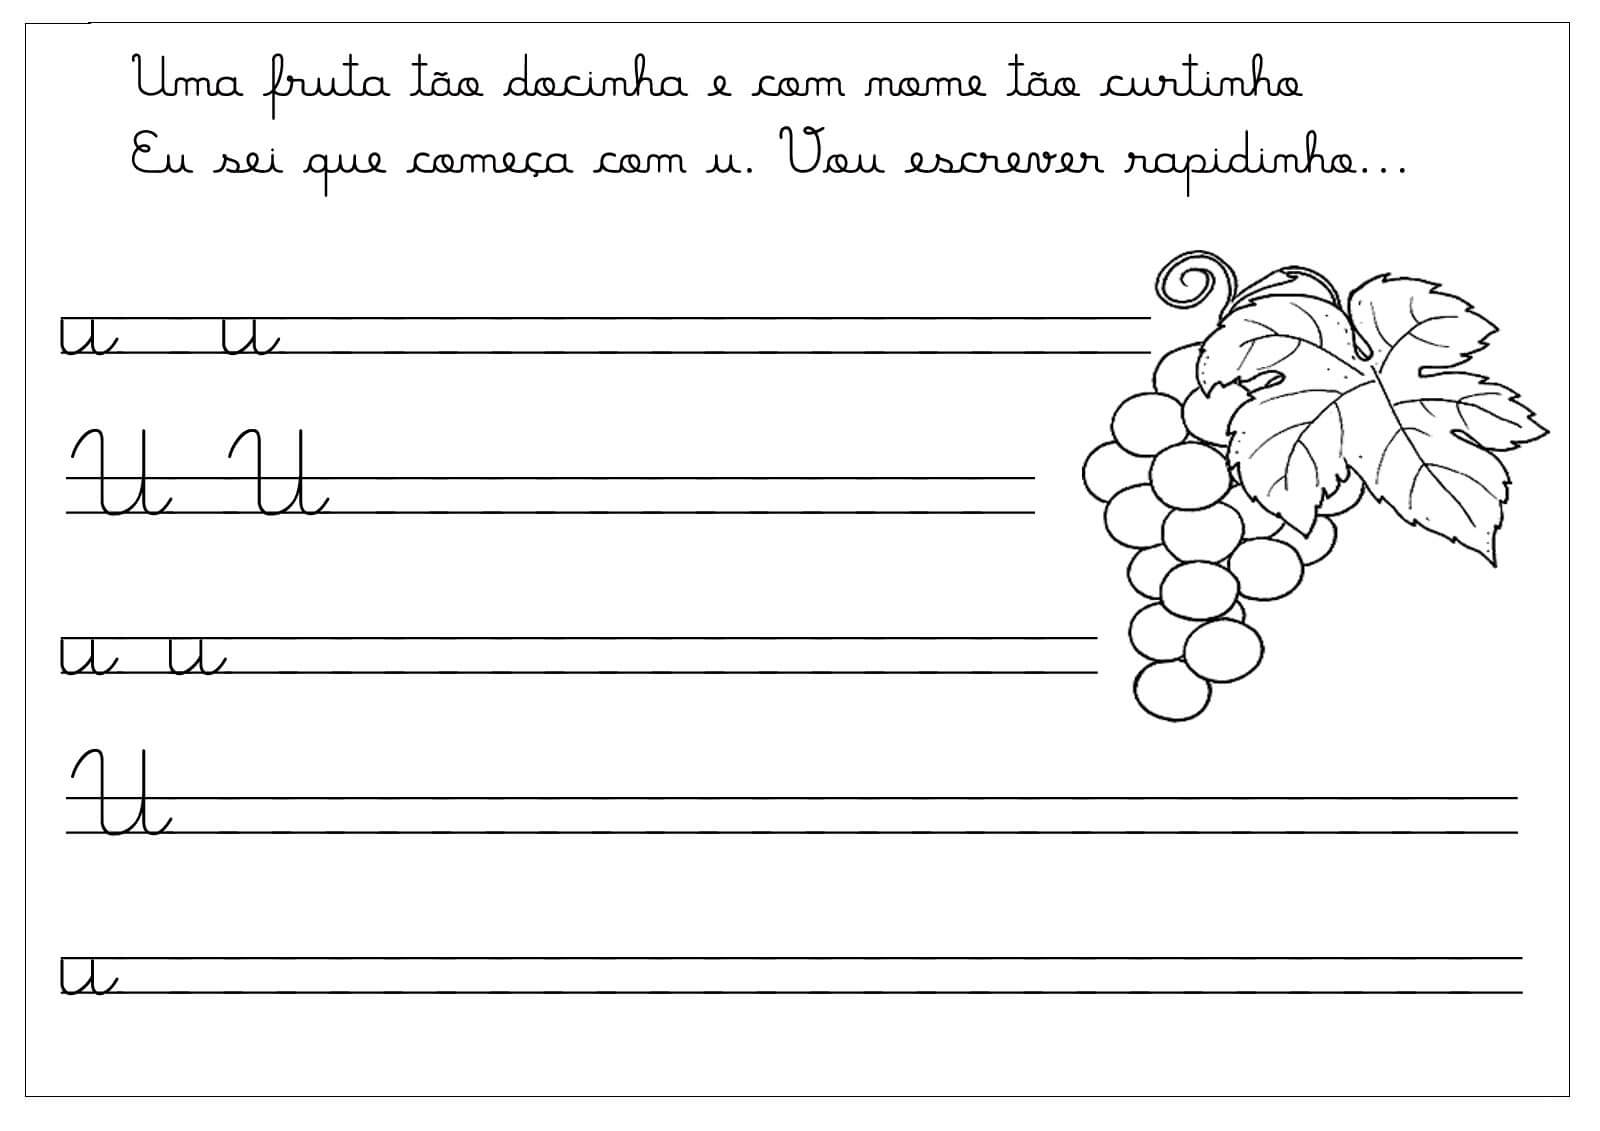 Uma fruta tão docinha e com nome tão curtinho
Eu sei que começa com u. Vou escrever rapidinho...
u u
U U
u u
U
u